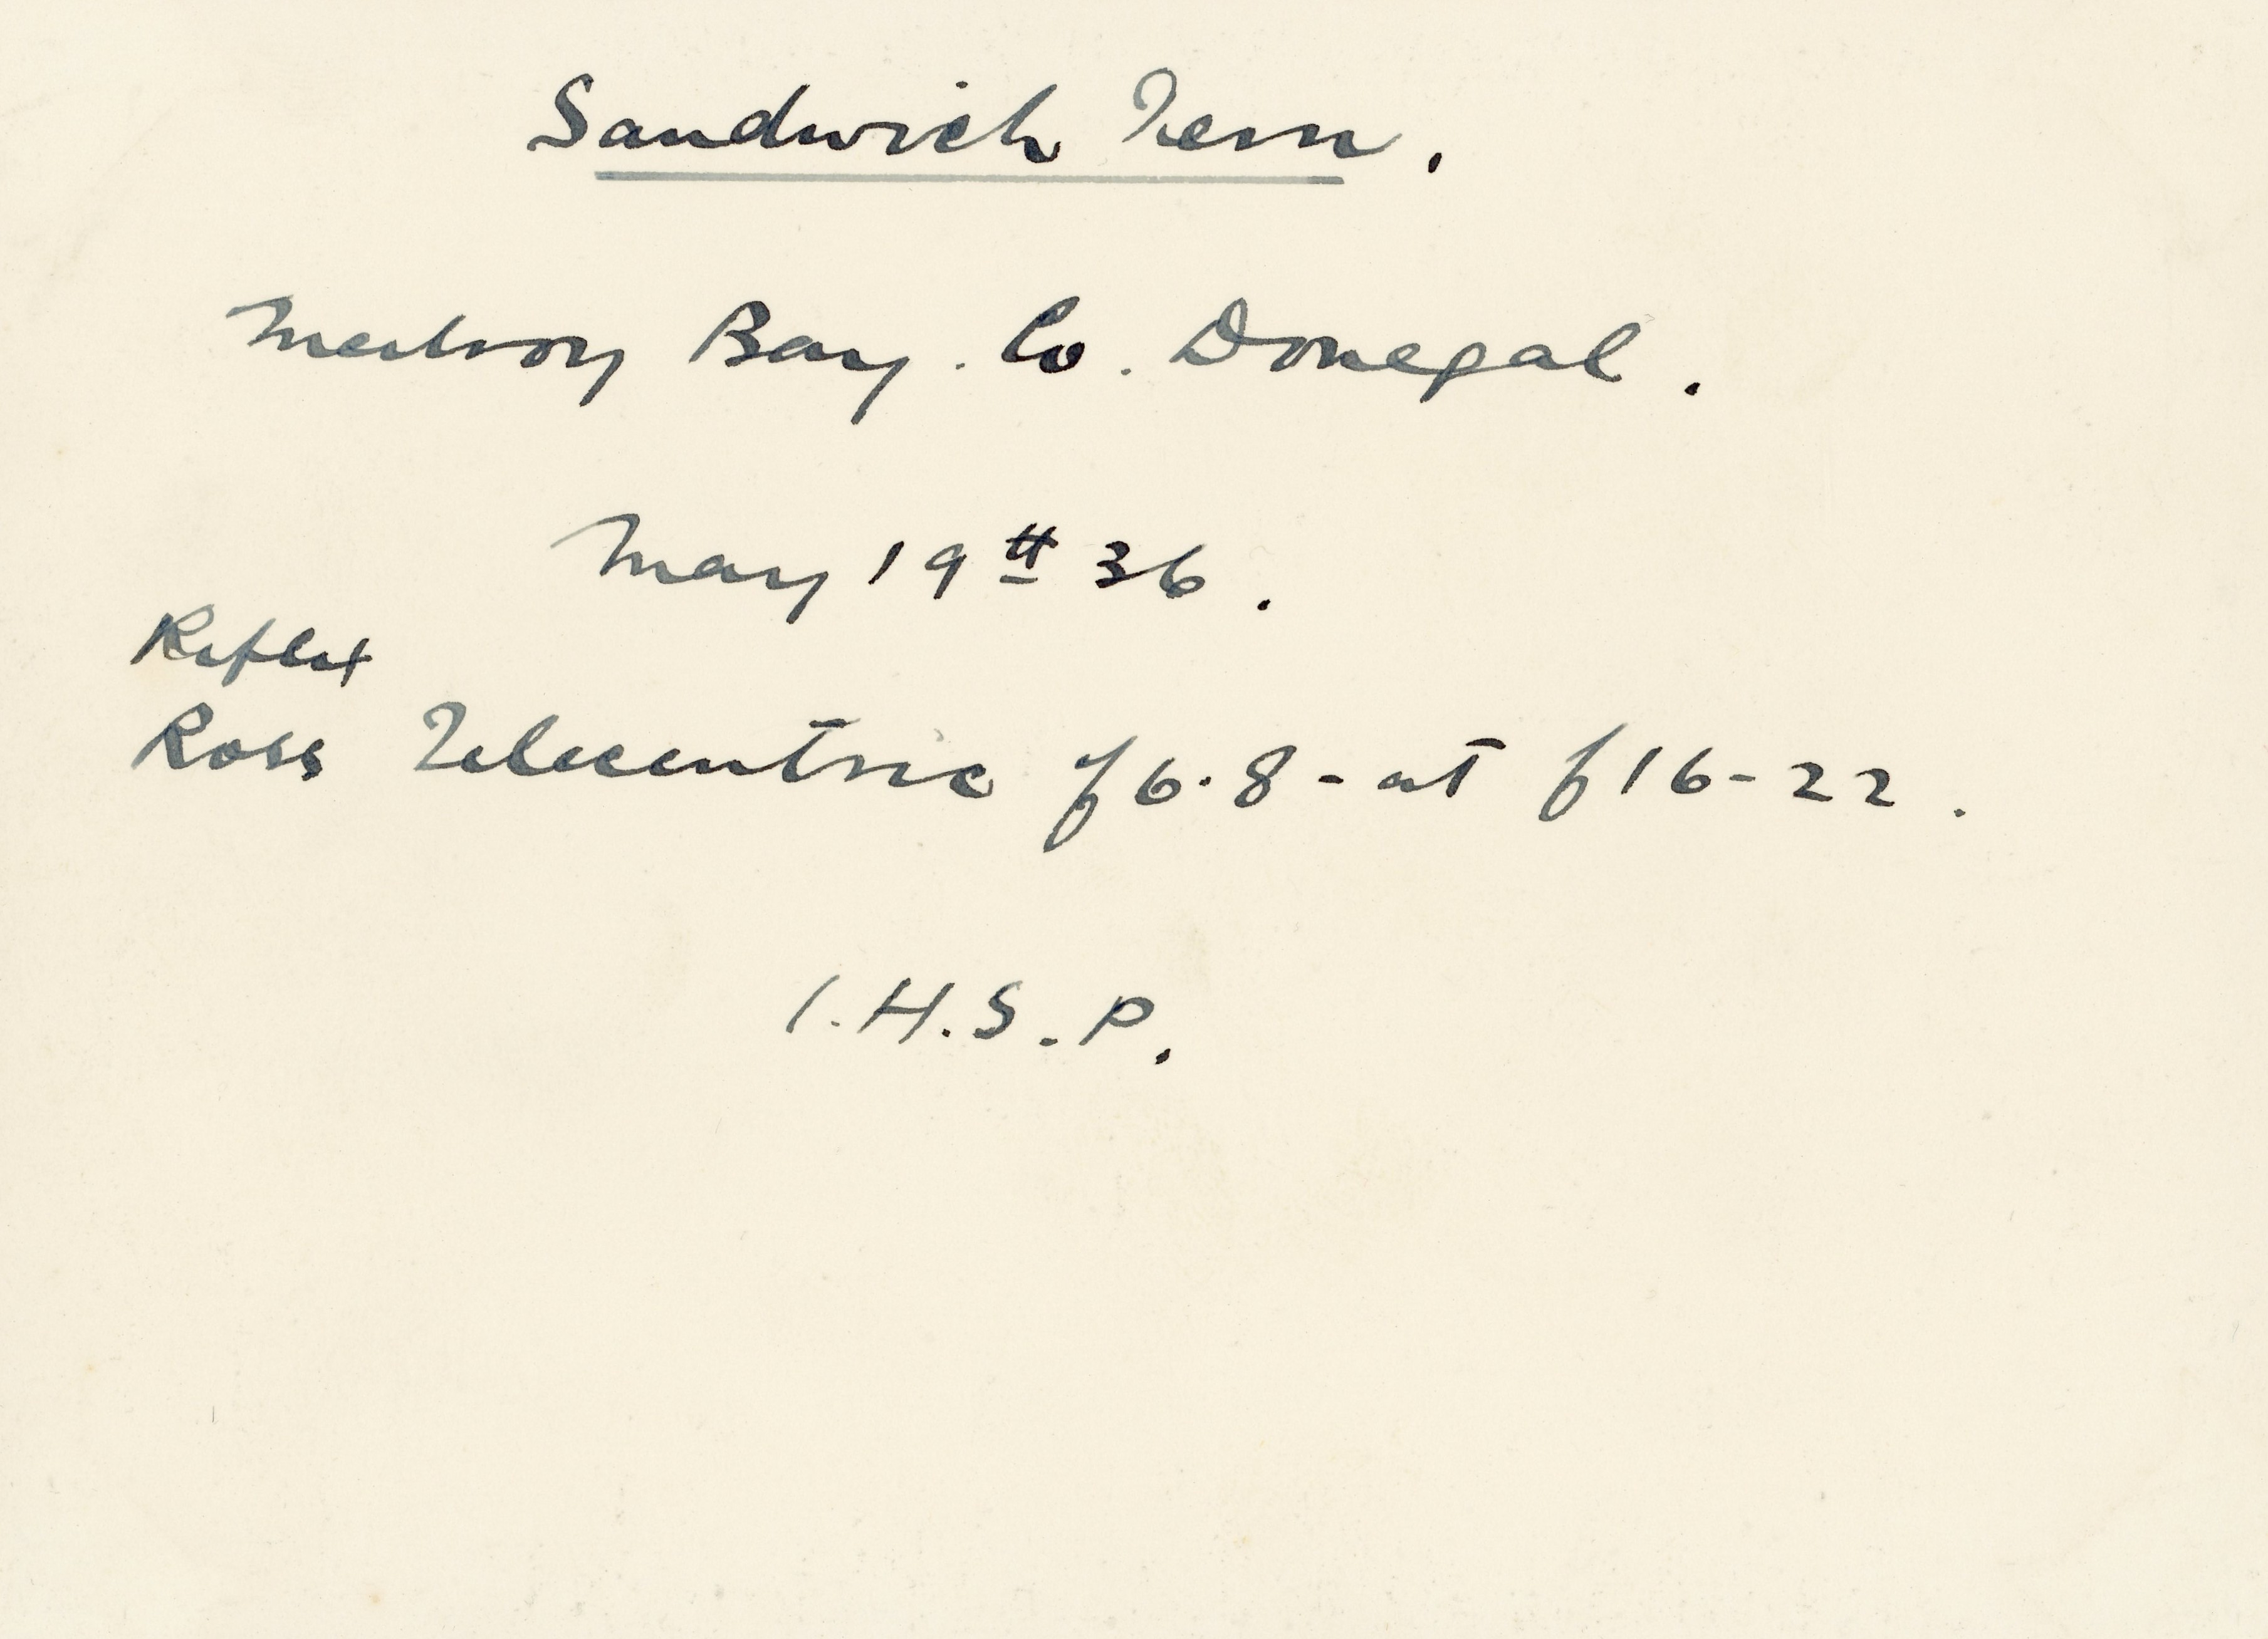 Sandwich Tern.
Mulroy Bay. Co. Donegal.
May 19th 36.
Reflex
Ross Telecentric f6.8 - at f16-22.
I.H.S.P.